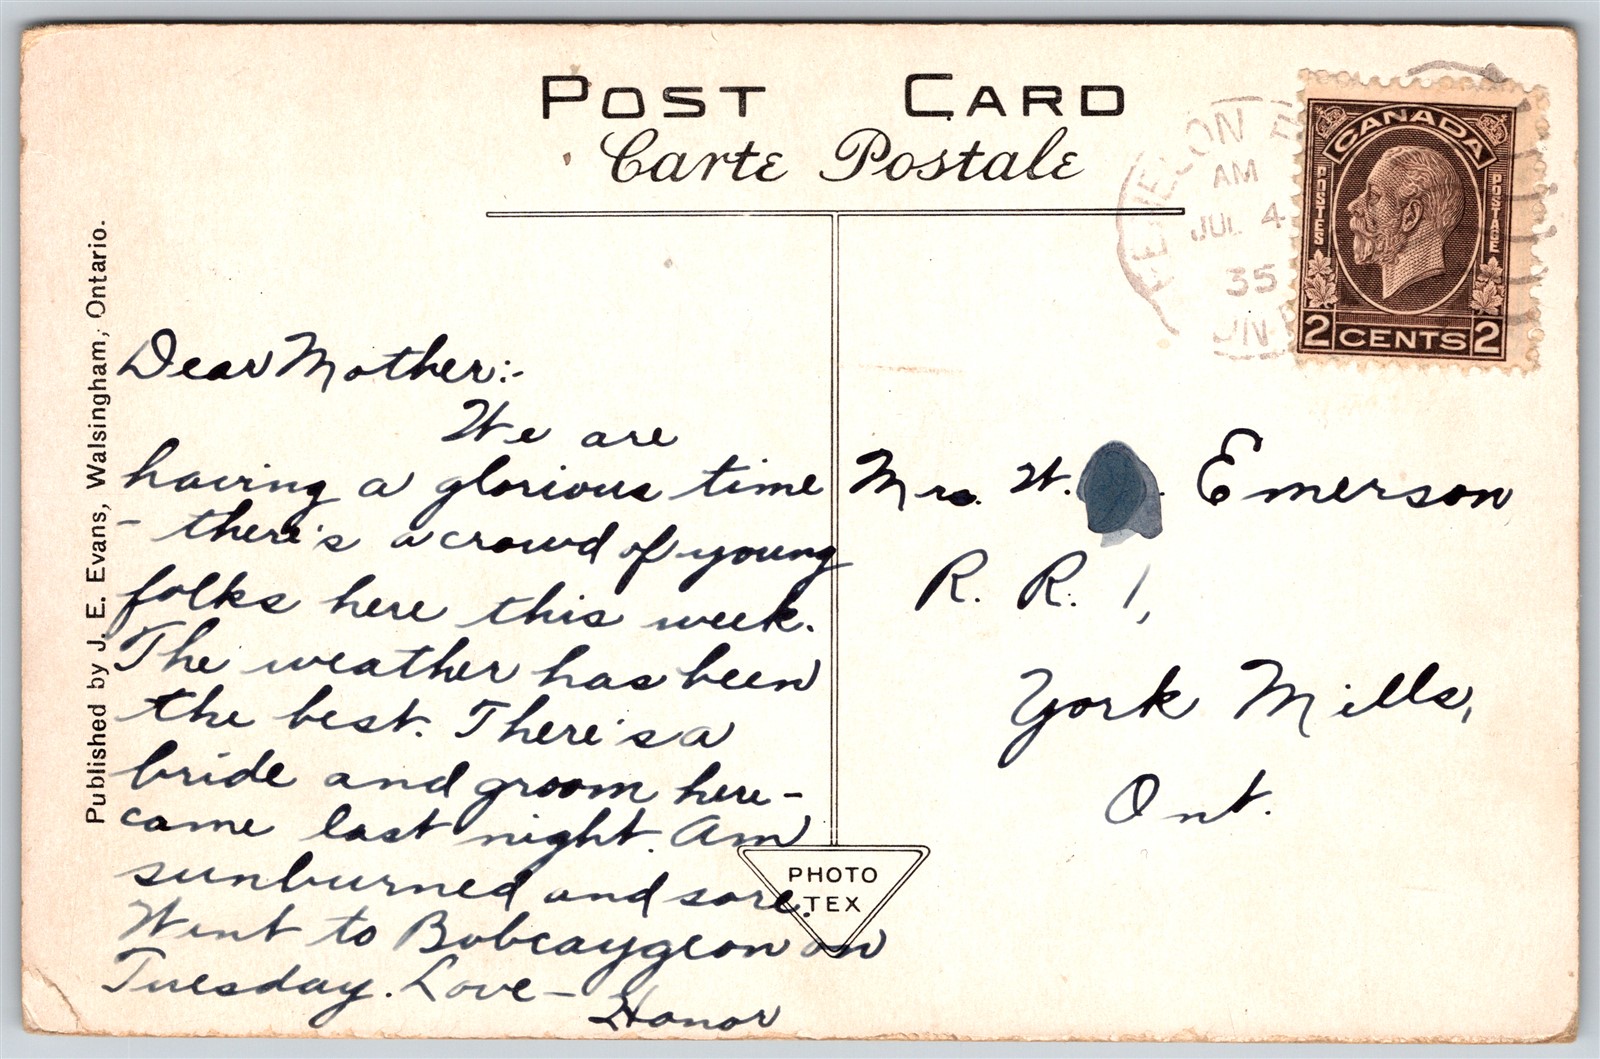 POST CARD
Carte Postale
AM
JUL 4
35
CANADA
POSTES
POSTAGE
2 CENTS 2
Published by J. E. Evans, Walsingham, Ontario.
Dear Mother:-
We are
having a glorious time
- there's a crowd of young
folks here this week.
The weather has been
the best. There's a
bride and groom here -
came last night. Am
sunburned and sore.
Went to Bobcaygeon on
Tuesday. Love -
Honor
PHOTO
TEX
Mrs. W. Emerson
R. R. 1,
York Mills,
Ont.